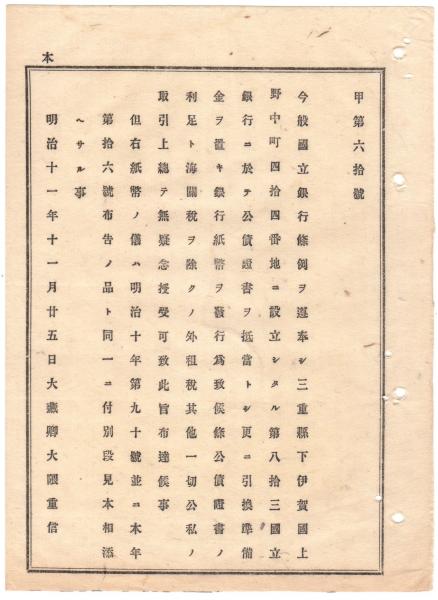 本
甲第六拾號
今般國立銀行條例ヲ遵奉シ三重縣下伊賀國上
野中町四拾四番地ニ設立シタル第八拾三國立
銀行ニ於テ公債證書ヲ抵當トシ更ニ引換準備
金ヲ置キ銀行紙幣ヲ發行爲致候條公債證書ノ
利足ト海關稅ヲ除クノ外租稅其他一切公私ノ
取引上總テ無疑念授受可致此旨布達候事
但右紙幣ノ儀ハ明治十年第九十號並ニ本年
第拾六號布告ノ品ト同一ニ付別段見本相添
ヘサル事
明治十一年十一月廿五日大藏卿大隈重信